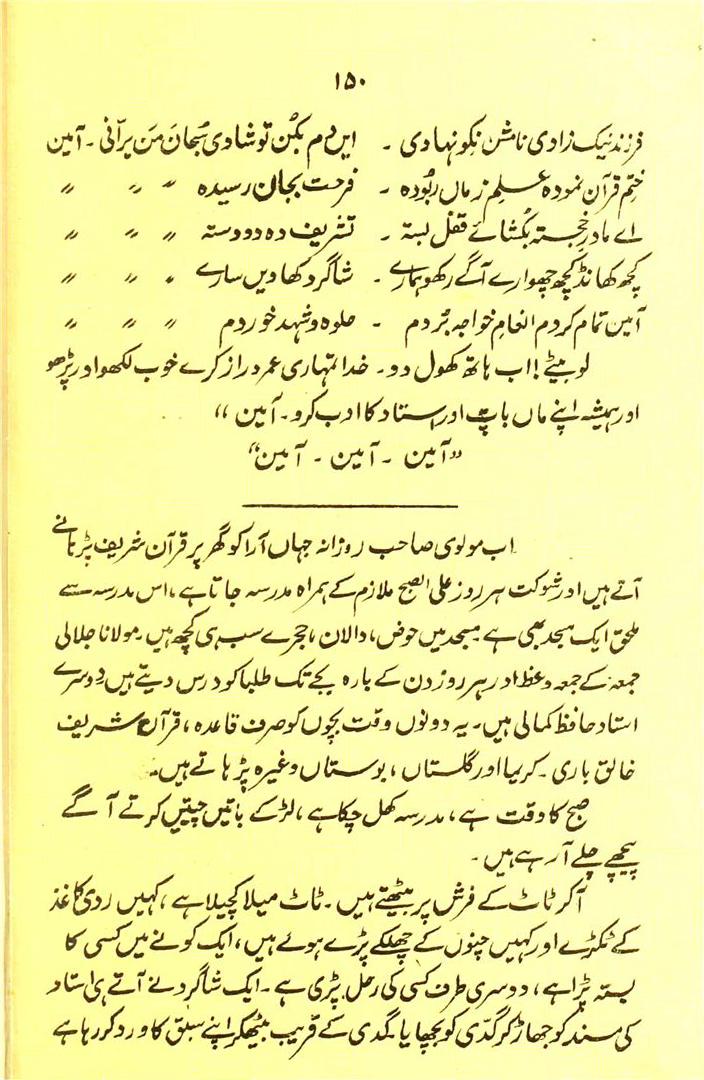 ۱۵۰
فرزند نیک زادی نامش نکو نہادی ۔ ایں دم بکن تو شادی سبحان من یرآنی ۔ آمین
ختم قرآن نمودہ علم زماں ربودہ ۔ فرحت بجان رسیدہ 〃 〃 〃
اے مادر خجستہ بکشائے قفل بستہ ۔ تشریف دہ دو دستہ 〃 〃 〃
کچھ کھانڈ کچھ چھوارے آگے رکھو ہمارے ۔ شاگرد کھاویں سارے 〃 〃 〃
آمین تمام کردم انعام خواجہ بُردم ۔ حلوہ و شہد خوردم 〃 〃 〃
لو بیٹے! اب ہاتھ کھول دو۔ خدا تمہاری عمر دراز کرے خوب لکھو اور پڑھو
اور ہمیشہ اپنے ماں باپ اور استاد کا ادب کرو۔ آمین ،،
”آمین ۔ آمین ۔ آمین“
اب مولوی صاحب روزانہ جہاں آرا کو گھر پر قرآن شریف پڑہانے
آتے ہیں اور شوکت ہر روز علی الصبح ملازم کے ہمراہ مدرسہ جاتا ہے، اس مدرسہ سے
ملحق ایک مسجد بھی ہے مسجد میں حوض، دالان، حجرے سب ہی کچھ ہیں۔ مولانا جلالی
جمعہ کے جمعہ وعظ اور ہر روز دن کے بارہ بجے تک طلبا کو درس دیتے ہیں دوسرے
استاد حافظ کمالی ہیں۔ یہ دونوں وقت بچوں کو صرف قاعدہ، قرآن شریف
خالق باری ۔ کریما اور گلستاں، بوستاں وغیرہ پڑہاتے ہیں۔
صبح کا وقت ہے، مدرسہ کھل چکا ہے، لڑکے باتیں چیتیں کرتے آگے
پیچھے چلے آ رہے ہیں ۔
آ کر ٹاٹ کے فرش پر بیٹھتے ہیں ۔ ٹاٹ میلا کچیلا ہے، کہیں ردی کاغذ
کے ٹکڑے اور کہیں چنوں کے چھلکے پڑے ہوئے ہیں، ایک کونے میں کسی کا
بستہ پڑا ہے، دوسری طرف کسی کی رحل پڑی ہے ۔ ایک شاگرد نے آتے ہی استاد
کی مسند کو جھاڑ کر گدّی کو بچھایا۔ گدی کے قریب بیٹھکر اپنے سبق کا ورد کر رہا ہے